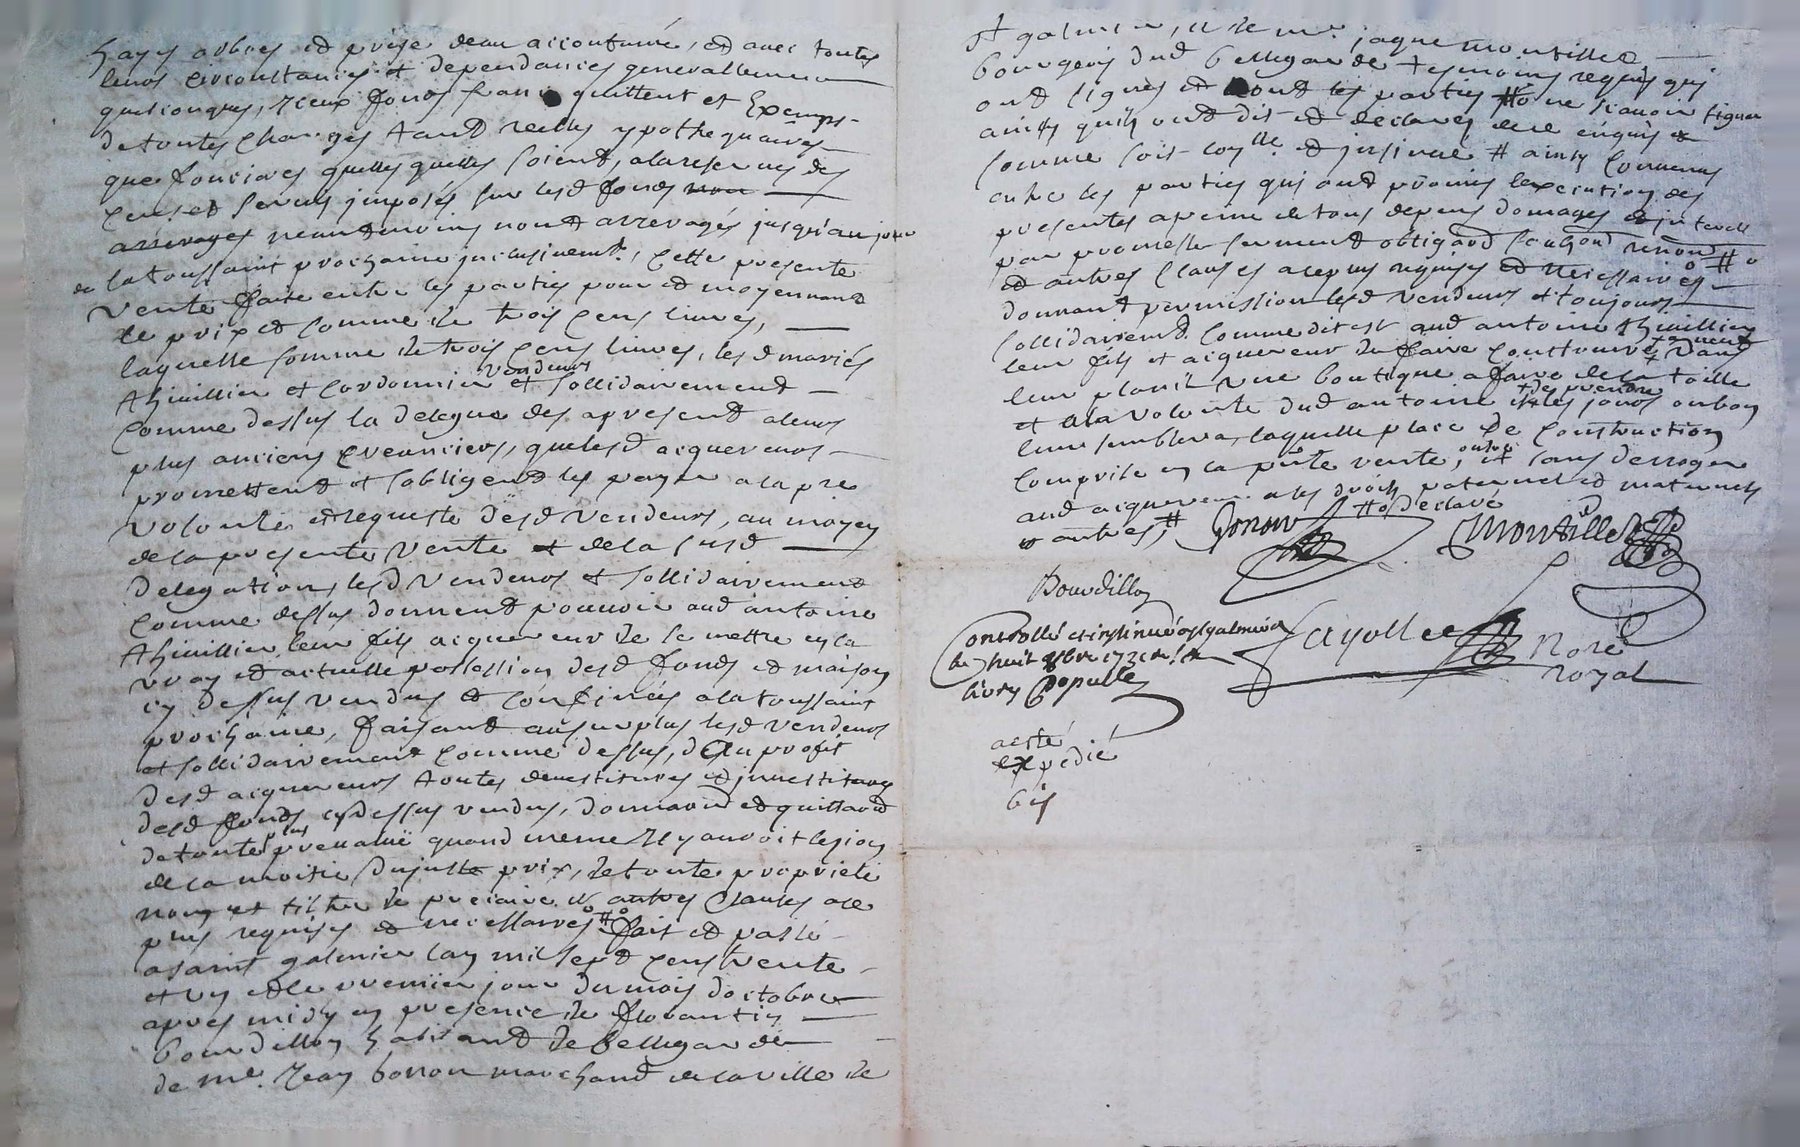 hayes arbres et prise deau accoutumé, et avec toutes
leurs circonstances et dependances generallement
quelconques, iceux fonds franc quittent et Exempts
de toutes charges tant reelles ypothequaires
que foncieres quelles quelles soient, alareserves des
cens et servis imposés sur lesd fonds
arrerages neantmoins non arreragés jusqu'au jour
de la toussaint prochaine inclusivemt, cette presente
vente faite entre les parties pour et moyennant
le prix et somme de trois cens livres,
laquelle somme de trois cens livres, lesd mariés
thivillier et cordonnier vendeurs et sollidairement
comme dessus la delegue des apresent aleurs
plus anciens creanciers, que lesd acquereurs
promettent et sobligent les payer a la pre
volonté et requiste desd vendeurs, au moyen
de la presente vente et de la susd
delegation, lesd vendeurs et sollidairement
comme dessus donnent pouvoir aud antoine
thivillier leur fils acquereur de se mettre en la
vray et actuelle possession desd fonds et maison
cy dessus vendus et confinés a la toussaint
prochaine, faisant au surplus lesd vendeurs
et sollidairement comme dessus, d au profit
desd acquereurs toutes devestitures et investitures
desd fonds cy dessus vendus, donnant et quittant
de toutes plus prevalue quand meme Il y auroit lezion
de la moitié dujuste prix, de toute proprieté
nom et tiltre de precaire et autres clauses ace
plus requises et necessaires # fait et passé
a saint galmier lan mil sept cens trente
et un et le premier jour du mois doctobre
apres midy en presence de florantin
bourdillon habitant de bellegarde
de me. Jean bonon marchand de la ville de
st galmier, et de mr. jaque montillet
bourgeois dud bellegarde tesmoins requis qui
ont signés et dont les parties #o ne scavoir signer
ainsy quils ont dit et declarés de ce enquis et
somme soit et insinué # ainsy convenus
entre les parties qui ont promis lexecution des
presentes apeine de tous depens domages et interets
par promesse serment obligaõn souhõn renõn #o
et autres clauses acepus requises et necessaires
donnant permission lesd vendeurs et toujours
sollidairemt. comme dit est aud antoine thivillier
leur fils et acquereur de faire construire dans
leur planil une boutique a faire de la toille
et ala volonté dud antoine et des prendre les jours on bon
leur semblera, laquelle place de construction
comprise en la pnte vente, et sans derroger
aud acquereur a les droits paternel et maternels
autres # #o declaré
Bonon Montillet
Bourdillon
Controllé et insinué a st galmier
le huit 8bre 1731
livres Depulley
Fayolle Nore
royal
aesté
expedié
bis